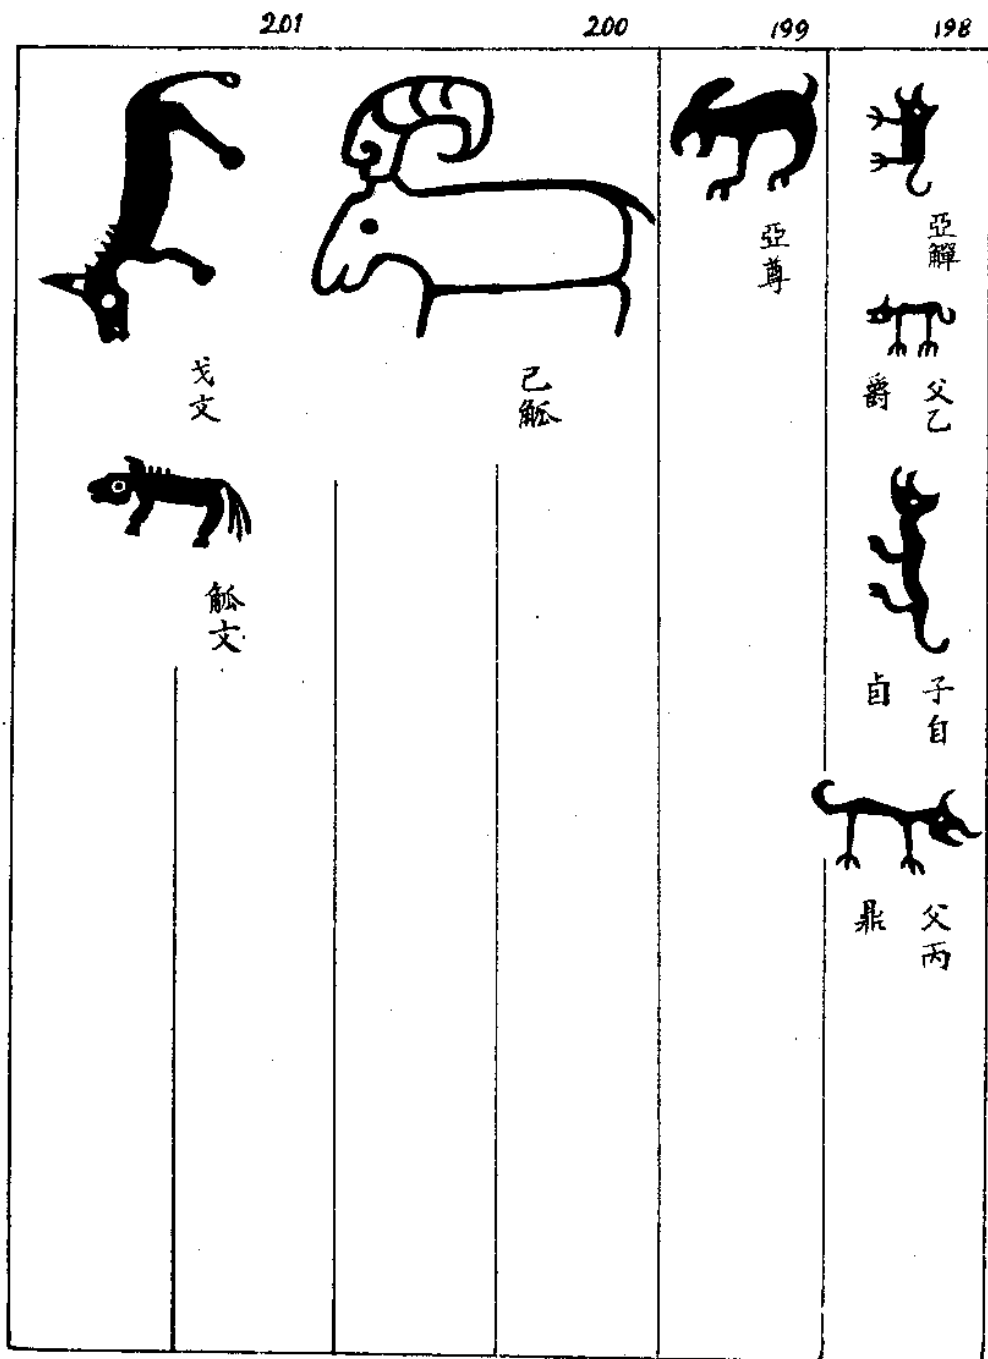 198
亞觶
父乙
爵
子自
卣
父丙
鼎
199
亞尊
200
己觚
201
戈文
觚文